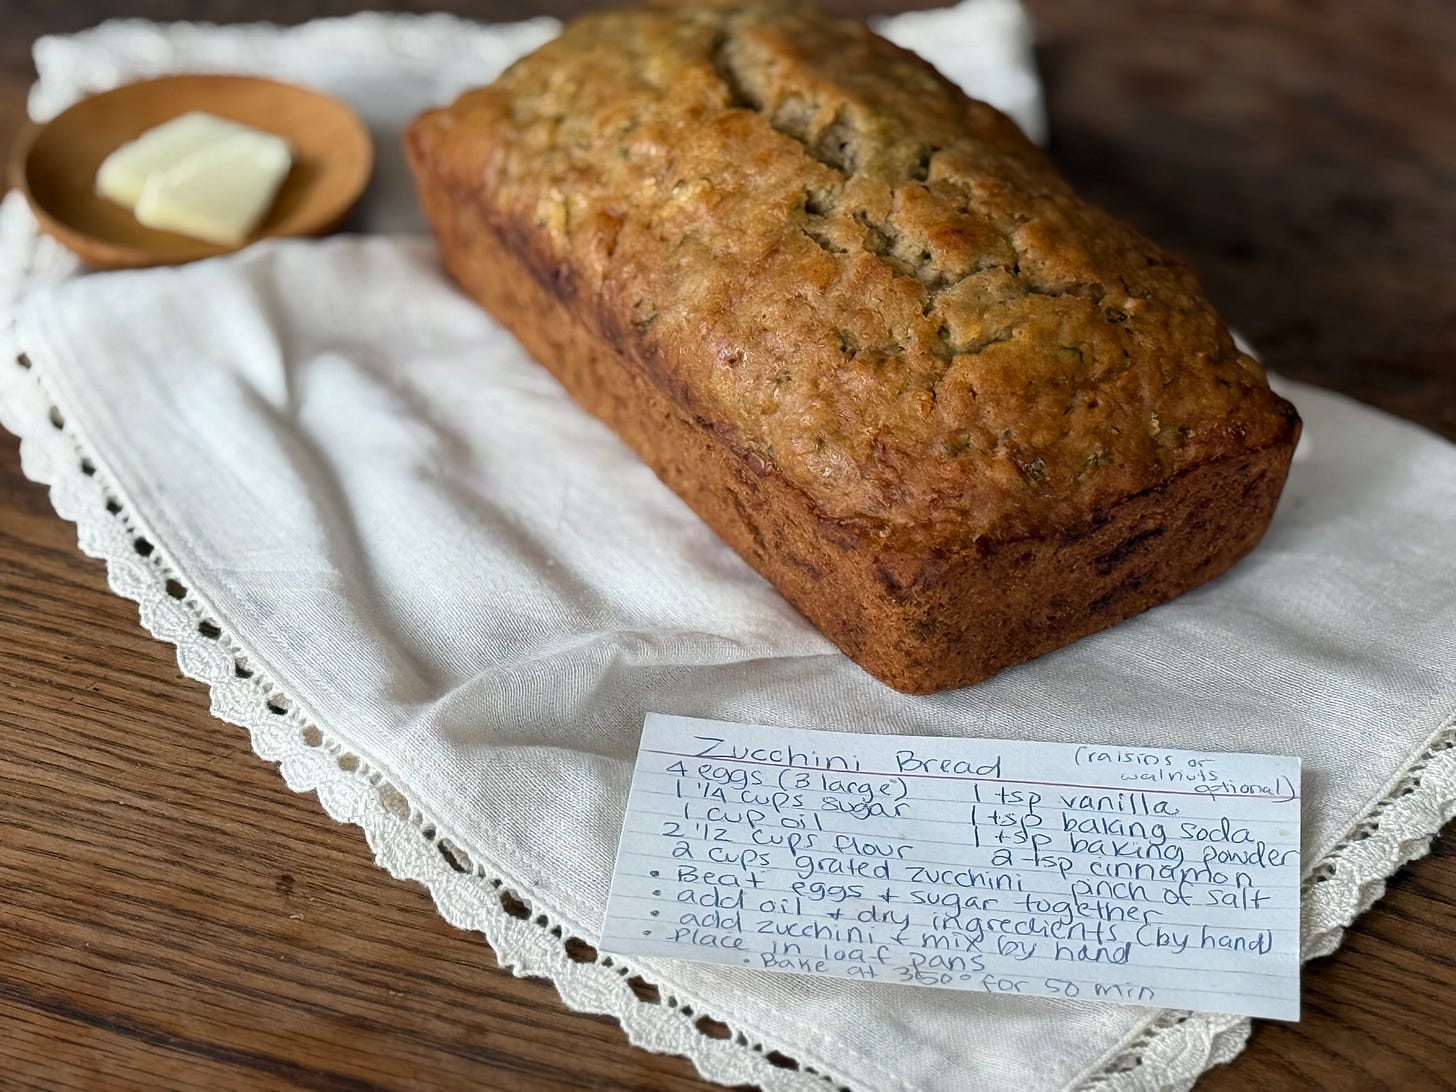 Zucchini Bread (raisins or walnuts optional)
4 eggs (3 large) 1 tsp vanilla
1 1/4 cups sugar 1 tsp baking soda
1 cup oil 1 tsp baking powder
2 1/2 cups flour 2 tsp cinnamon
2 cups grated zucchini pinch of salt
• Beat eggs + sugar together
• add oil + dry ingredients (by hand)
• add zucchini + mix by hand
• Place in loaf pans
• Bake at 350° for 50 min